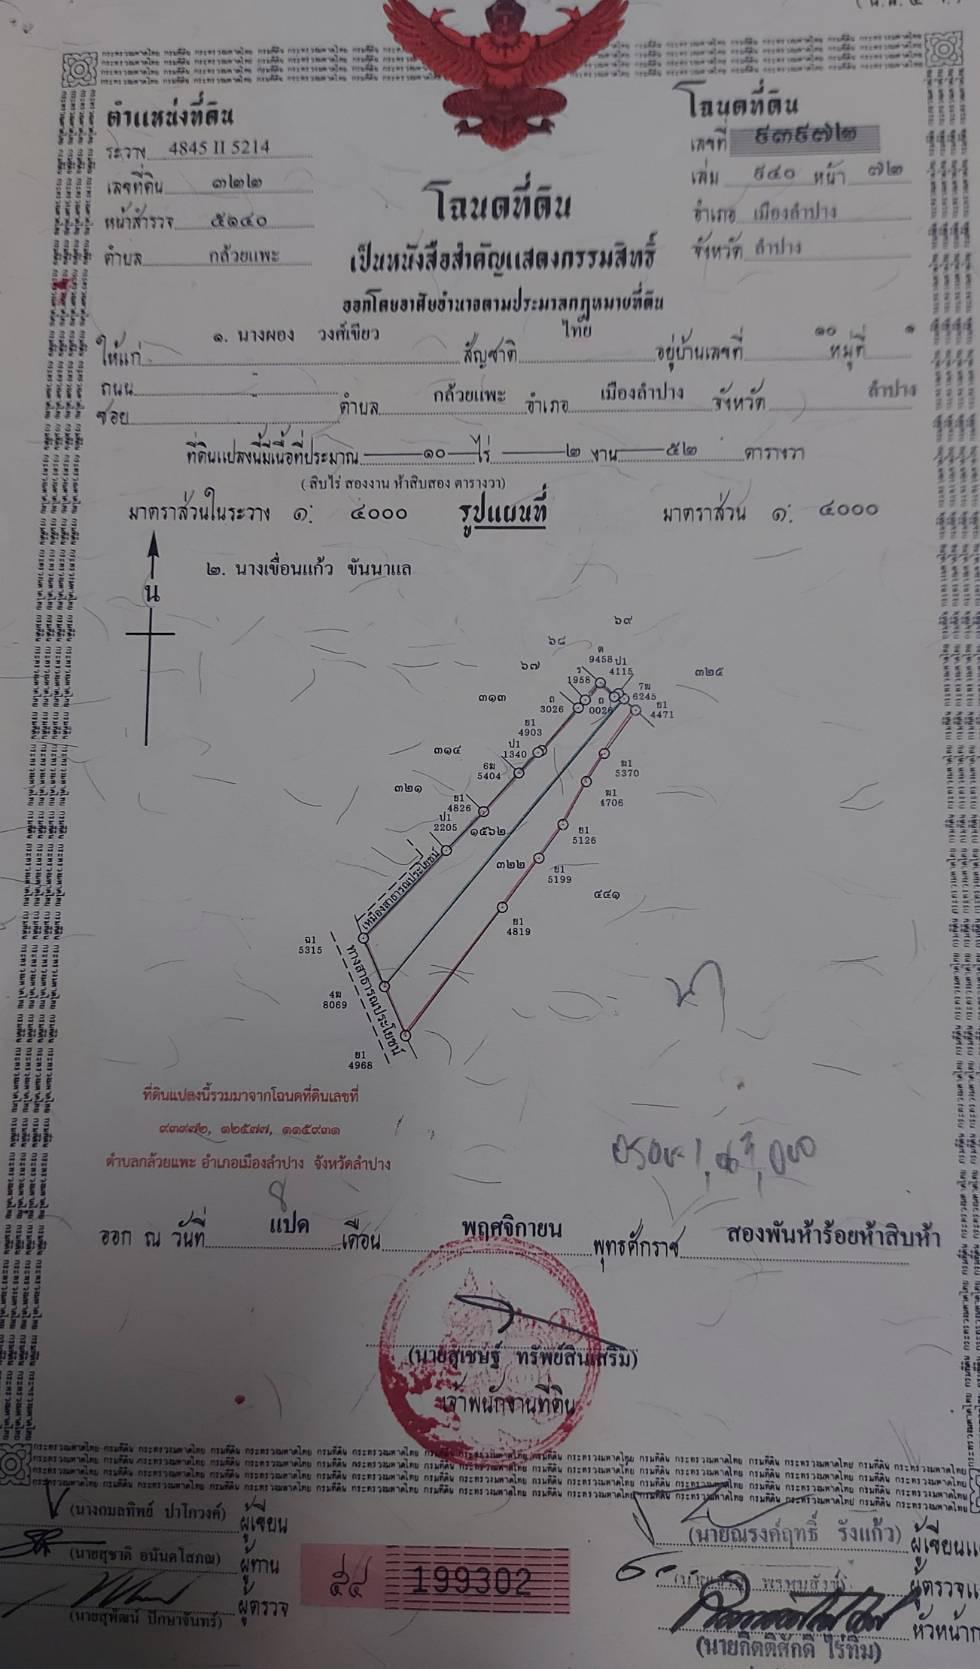 ตำแหน่งที่ดิน
ระวาง 4845 II 5214
เลขที่ดิน ๓๒๒
หน้าสำรวจ ๕๑๔๐
ตำบล กล้วยแพะ
โฉนดที่ดิน
เลขที่ ๙๓๙๗๒
เล่ม ๙๔๐ หน้า ๗๒
อำเภอ เมืองลำปาง
จังหวัด ลำปาง
โฉนดที่ดิน
เป็นหนังสือสำคัญแสดงกรรมสิทธิ์
ออกโดยอาศัยอำนาจตามประมวลกฎหมายที่ดิน
ให้แก่ ๑. นางผอง วงศ์เขียว สัญชาติ ไทย อยู่บ้านเลขที่ ๑๐ หมู่ที่ ๑
ถนน
ซอย ตำบล กล้วยแพะ อำเภอ เมืองลำปาง จังหวัด ลำปาง
ที่ดินแปลงนี้มีเนื้อที่ประมาณ ๑๐ ไร่ ๒ งาน ๕๒ ตารางวา
(สิบไร่ สองงาน ห้าสิบสอง ตารางวา)
มาตราส่วนในระวาง ๑: ๔๐๐๐ รูปแผนที่ มาตราส่วน ๑: ๔๐๐๐
น
๒. นางเขื่อนแก้ว ขันนาแล
๖๙
๖๘
๖๗
๓๑๓
๓๑๔
๓๒๑
๓๒๕
ต
9458
ป1
4115
ร
1958
7ฆ
6245
ถ
3026
ถ
0026
ย1
4471
ย1
4903
ป1
1340
6ฆ
5404
ฆ1
5370
ฆ1
4706
ย1
4826
ป1
2205
๑๕๖๒
ย1
5126
๓๒๒
ย1
5199
๔๔๑
ย1
4819
เหมืองสาธารณประโยชน์
ฉ1
5315
ทางสาธารณประโยชน์
4ฆ
8069
ย1
4968
นา
ที่ดินแปลงนี้รวมมาจากโฉนดที่ดินเลขที่
๙๓๙๗๒, ๑๒๕๗๗, ๑๑๕๙๓๑
ตำบลกล้วยแพะ อำเภอเมืองลำปาง จังหวัดลำปาง
8
ออก ณ วันที่ แปด เดือน พฤศจิกายน พุทธศักราช สองพันห้าร้อยห้าสิบห้า
(นายสุเชษฐ์ ทรัพย์สินเสริม)
เจ้าพนักงานที่ดิน
(นางกมลทิพย์ ปาไกวงค์) ผู้เขียน
(นายสุชาติ อนันตโสภณ) ผู้ทาน
(นายสุพัฒน์ ปักษาจันทร์) ผู้ตรวจ
๕๔ 199302
(นายณรงค์ฤทธิ์ รังแก้ว)
(นายกิตติศักดิ์ ไร่ทิม)